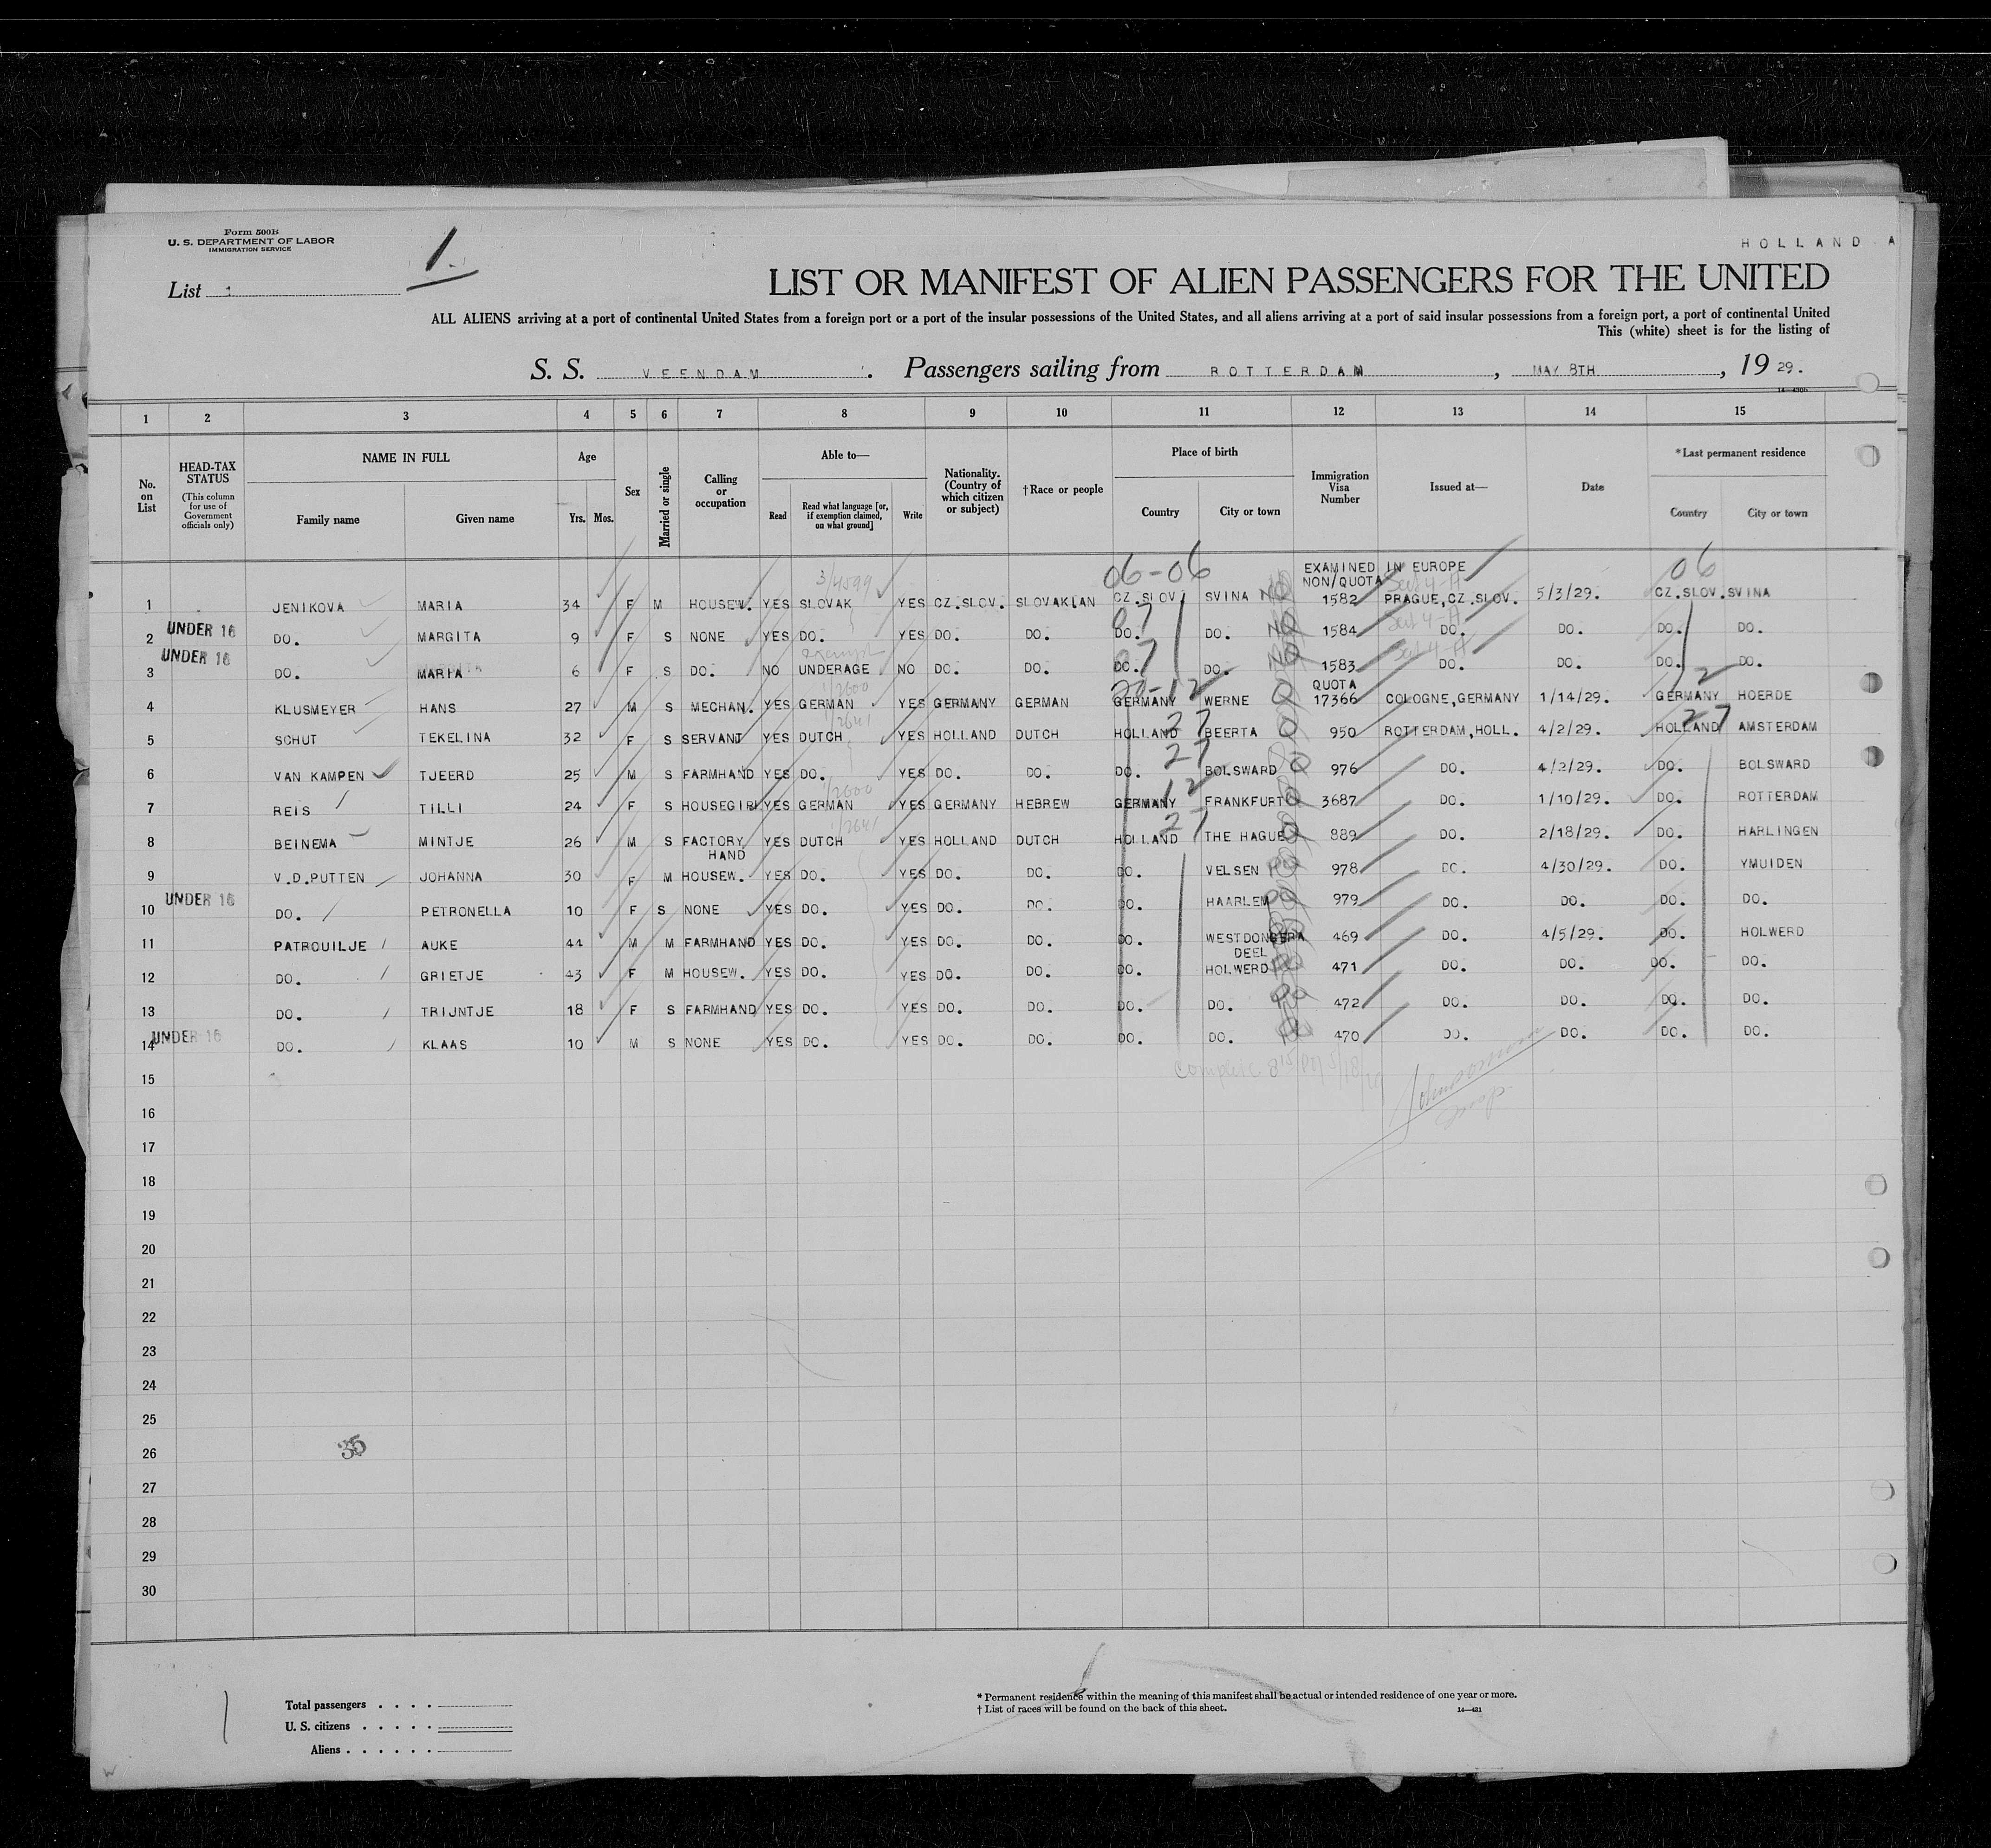 Form 500B
U. S. DEPARTMENT OF LABOR
IMMIGRATION SERVICE
HOLLAND A
1.
List 1
LIST OR MANIFEST OF ALIEN PASSENGERS FOR THE UNITED
ALL ALIENS arriving at a port of continental United States from a foreign port or a port of the insular possessions of the United States, and all aliens arriving at a port of said insular possessions from a foreign port, a port of continental United
This (white) sheet is for the listing of
S. S. VEENDAM. Passengers sailing from ROTTERDAM, MAY 8TH, 19 29.
1 2 3 4 5 6 7 8 9 10 11 12 13 14 15
No. on List
HEAD-TAX STATUS (This column for use of Government officials only)
NAME IN FULL Family name Given name
Age Yrs. Mos.
Sex
Married or single
Calling or occupation
Able to— Read Read what language [or, if exemption claimed, on what ground] Write
Nationality. (Country of which citizen or subject)
†Race or people
Place of birth Country City or town
Immigration Visa Number
Issued at—
Date
*Last permanent residence Country City or town
06-06 06
3/4599
EXAMINED IN EUROPE
NON/QUOTA Sect 4-A
1 JENIKOVA MARIA 34 F M HOUSEW. YES SLOVAK YES CZ.SLOV. SLOVAKIAN CZ.SLOV. SVINA NQ 1582 PRAGUE,CZ.SLOV. 5/3/29. CZ.SLOV. SVINA
07 Sect 4-A
UNDER 16
2 DO. MARGITA 9 F S NONE YES DO. YES DO. DO. DO. DO. NQ 1584 DO. DO. DO. DO.
exempt 07 Sect 4-A
UNDER 16
3 DO. MARIA 6 F S DO. NO UNDERAGE NO DO. DO. DO. DO. NQ 1583 DO. DO. DO. DO.
1/2600 12 QUOTA 2
4 KLUSMEYER HANS 27 M S MECHAN. YES GERMAN YES GERMANY GERMAN GERMANY WERNE Q 17366 COLOGNE,GERMANY 1/14/29. GERMANY HOERDE
1/2641 27 27
5 SCHUT TEKELINA 32 F S SERVANT YES DUTCH YES HOLLAND DUTCH HOLLAND BEERTA Q 950 ROTTERDAM,HOLL. 4/2/29. HOLLAND AMSTERDAM
27
6 VAN KAMPEN TJEERD 25 M S FARMHAND YES DO. YES DO. DO. DO. BOLSWARD Q 976 DO. 4/2/29. DO. BOLSWARD
1/2600 12
7 REIS TILLI 24 F S HOUSEGIRL YES GERMAN YES GERMANY HEBREW GERMANY FRANKFURT 3687 DO. 1/10/29. DO. ROTTERDAM
1/2641 27
8 BEINEMA MINTJE 26 M S FACTORY HAND YES DUTCH YES HOLLAND DUTCH HOLLAND THE HAGUE 889 DO. 2/18/29. DO. HARLINGEN
9 V.D.PUTTEN JOHANNA 30 F M HOUSEW. YES DO. YES DO. DO. DO. VELSEN 978 DO. 4/30/29. DO. YMUIDEN
UNDER 16
10 DO. PETRONELLA 10 F S NONE YES DO. YES DO. DO. DO. HAARLEM 979 DO. DO. DO. DO.
11 PATROUILJE AUKE 44 M M FARMHAND YES DO. YES DO. DO. DO. WESTDONGERA DEEL 469 DO. 4/5/29. DO. HOLWERD
12 DO. GRIETJE 43 F M HOUSEW. YES DO. YES DO. DO. DO. HOLWERD 471 DO. DO. DO. DO.
13 DO. TRIJNTJE 18 F S FARMHAND YES DO. YES DO. DO. DO. DO. 472 DO. DO. DO. DO.
UNDER 16
14 DO. KLAAS 10 M S NONE YES DO. YES DO. DO. DO. DO. 470 DO. DO. DO. DO.
15 Complete
16
17
18
19
20
21
22
23
24
25
26 35
27
28
29
30
Total passengers . . . .
U. S. citizens . . . . .
Aliens . . . . . .
* Permanent residence within the meaning of this manifest shall be actual or intended residence of one year or more.
† List of races will be found on the back of this sheet.
14—431